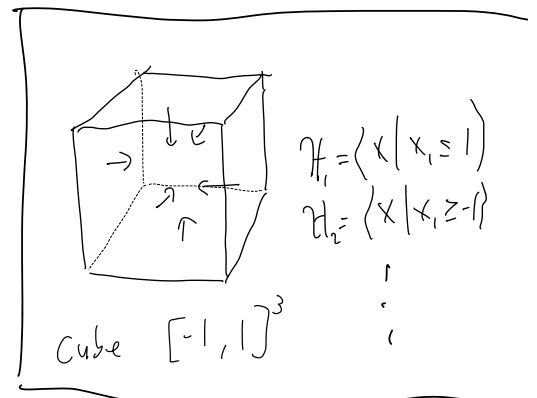 H₁ = {x | x₁ ≤ 1}
H₂ = {x | x₁ ≥ -1}
⋮
Cube [-1, 1]³